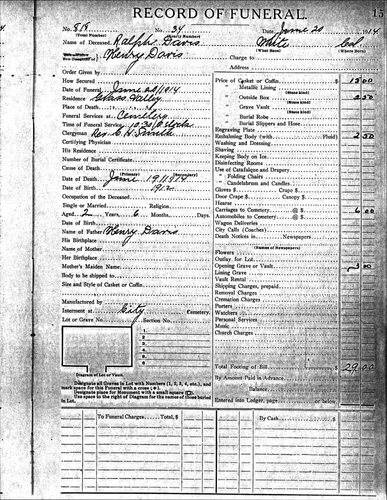 RECORD OF FUNERAL.
No. 818 No. 34 Date June 20 1914
(Total Number) (Yearly Number)
Name of Deceased Ralph Davis White Col.
Henry Davis Charge to
Address
Order Given by
How Secured
Date of Funeral June 20/1914
Residence Valley
Place of Death
Funeral Services at Cemetery
Time of Funeral Service 10:30 O'clock
Clergyman Rev. Smith
Certifying Physician
His Residence
Number of Burial Certificate
Cause of Death
Date of Death June 19 1914
Date of Birth 1912
Occupation of the Deceased
Single or Married Religion
Aged 2 Years, 6 Months, Days.
Name of Father Henry Davis
His Birthplace
Name of Mother
Her Birthplace
Mother's Maiden Name
Body to be shipped to
Size and Style of Casket or Coffin
Manufactured by
Interment at City Cemetery.
Lot or Grave No. Section No.
1
2
3
4
5
Diagram of Lot or Vault.
Designate all Graves in Lot with Numbers (1, 2, 3, 4, etc.), and
mark space for this Funeral with a cross
Designate place for Monument with a small square
Use space to the right of Diagram for the names of those buried
in Lot.
Price of Casket or Coffin $ 15 00
" Metallic Lining
" Outside Box 2 50
" Grave Vault
" Burial Robe
" Burial Slippers and Hose
Engraving Plate
Embalming Body (with Fluid) 2 50
Washing and Dressing
Shaving
Keeping Body on Ice
Disinfecting Rooms
Use of Catafalque and Drapery
" Folding Chairs
" Candelabrum and Candles
Gloves $ Crape $
Door Crape $ Canopy $
Hearse
Carriages to Cemetery @ $ 6 00
Automobiles to Cemetery @ $
Wagon Deliveries
City Calls (Coaches)
Death Notices in Newspapers
(Names of Newspapers)
Flowers
Outlay for Lot
Opening Grave or Vault 3 00
Lining Grave
Vault Rental
Shipping Charges, prepaid
Removal Charges
Cremation Charges
Porters
Watchers
Personal Services
Music
Church Charges
Total Footing of Bill $ 29 00
By Amount Paid in Advance
Balance
Entered into Ledger, page
To Funeral Charges Total, $ By Cash